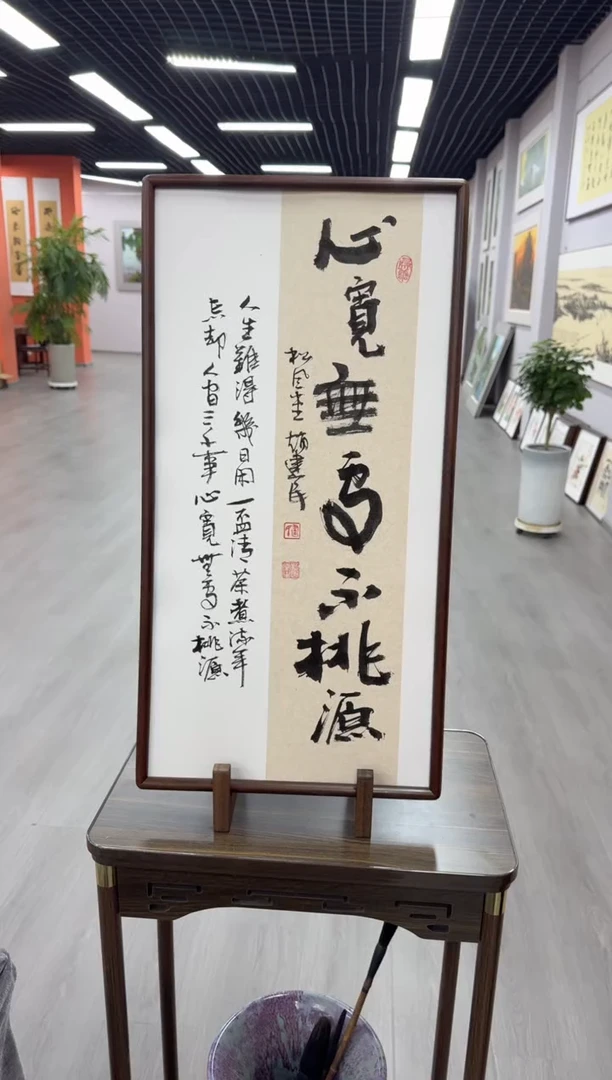 心寬無處不桃源
松風堂 趙建民
人生難得幾日閑一盃清茶煮流年
忘却人間三千事心寬無處不桃源